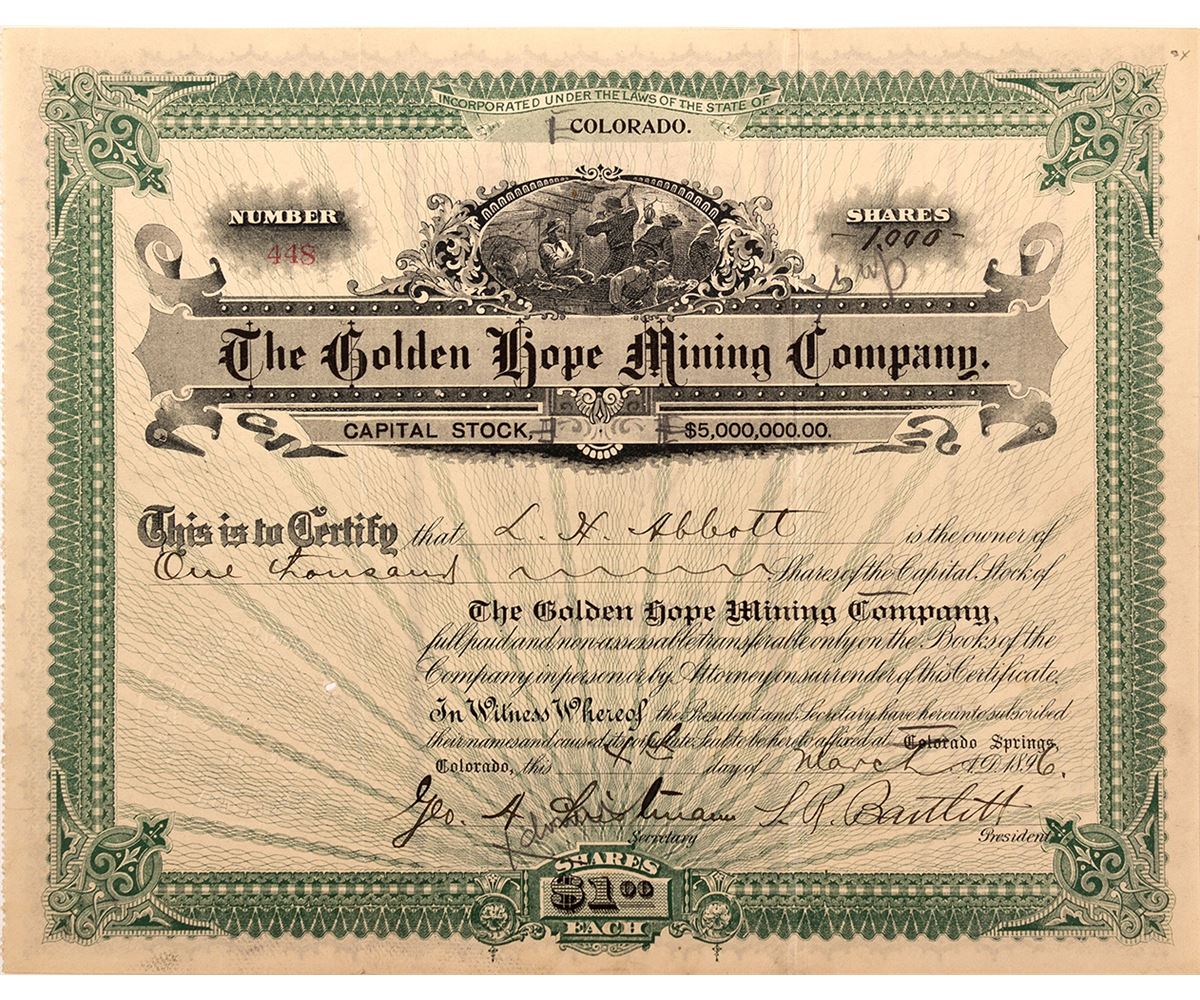 INCORPORATED UNDER THE LAWS OF THE STATE OF
COLORADO.
NUMBER
448
SHARES
1,000
The Golden Hope Mining Company.
CAPITAL STOCK, $5,000,000.00.
This is to Certify that L. H. Abbott is the owner of
One thousand Shares of the Capital Stock of
The Golden Hope Mining Company,
full paid and non-assessable transferable only on the Books of the
Company in person or by Attorney on surrender of this Certificate.
In Witness Whereof the President and Secretary have hereunto subscribed
their names and caused its corporate Seal to be hereto affixed at Colorado Springs,
Colorado, this day of March A.D. 1896.
Geo. A. Christmann L R. Bartlett
Secretary President
SHARES
$1.00
EACH